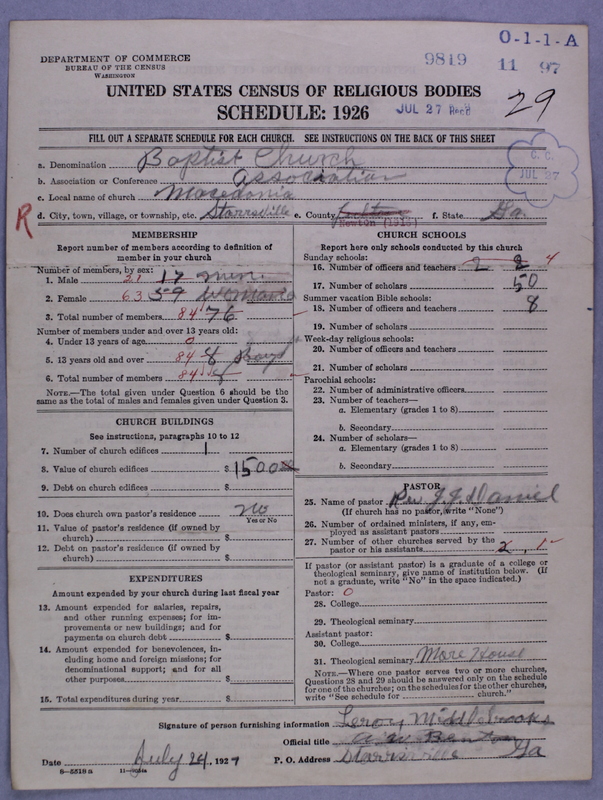 O-1-1-A
DEPARTMENT OF COMMERCE
BUREAU OF THE CENSUS
WASHINGTON
9819 11 97
UNITED STATES CENSUS OF RELIGIOUS BODIES
SCHEDULE: 1926
JUL 27 Recd
29
FILL OUT A SEPARATE SCHEDULE FOR EACH CHURCH. SEE INSTRUCTIONS ON THE BACK OF THIS SHEET
C. C.
JUL 27
a. Denomination Baptist Church
b. Association or Conference association
c. Local name of church Macedonia
R
d. City, town, village, or township, etc. Starrsville e. County Newton (1916) f. State Ga.
MEMBERSHIP
Report number of members according to definition of
member in your church
Number of members, by sex:
1. Male 21 17 men
2. Female 63 59
3. Total number of members 84 76
Number of members under and over 13 years old:
4. Under 13 years of age 0
5. 13 years old and over 84 8 boys
6. Total number of members 84
NOTE.—The total given under Question 6 should be the
same as the total of males and females given under Question 3.
CHURCH BUILDINGS
See instructions, paragraphs 10 to 12
7. Number of church edifices 1
8. Value of church edifices $1500
9. Debt on church edifices $
10. Does church own pastor's residence No
Yes or No
11. Value of pastor's residence (if owned by
church) $
12. Debt on pastor's residence (if owned by
church) $
EXPENDITURES
Amount expended by your church during last fiscal year
13. Amount expended for salaries, repairs,
and other running expenses; for im-
provements or new buildings; and for
payments on church debt $
14. Amount expended for benevolences, in-
cluding home and foreign missions; for
denominational support; and for all
other purposes $
15. Total expenditures during year $
CHURCH SCHOOLS
Report here only schools conducted by this church
Sunday schools:
16. Number of officers and teachers 2 2 4
17. Number of scholars 50
Summer vacation Bible schools:
18. Number of officers and teachers 8
19. Number of scholars
Week-day religious schools:
20. Number of officers and teachers
21. Number of scholars
Parochial schools:
22. Number of administrative officers
23. Number of teachers—
a. Elementary (grades 1 to 8)
b. Secondary
24. Number of scholars—
a. Elementary (grades 1 to 8)
b. Secondary
PASTOR
25. Name of pastor Rev J. J. Daniel
(If church has no pastor, write "None")
26. Number of ordained ministers, if any, em-
ployed as assistant pastors
27. Number of other churches served by the
pastor or his assistants 2, 1
If pastor (or assistant pastor) is a graduate of a college or
theological seminary, give name of institution below. (If
not a graduate, write "No" in the space indicated.)
Pastor: 0
28. College
29. Theological seminary
Assistant pastor:
30. College
31. Theological seminary More House
NOTE.—Where one pastor serves two or more churches,
Questions 28 and 29 should be answered only on the schedule
for one of the churches; on the schedules for the other churches,
write "See schedule for church."
Signature of person furnishing information Leroy Middlebrooks
Official title a. w. Benton
Date July 24, 1927 P. O. Address Starrsville Ga
8-5518a